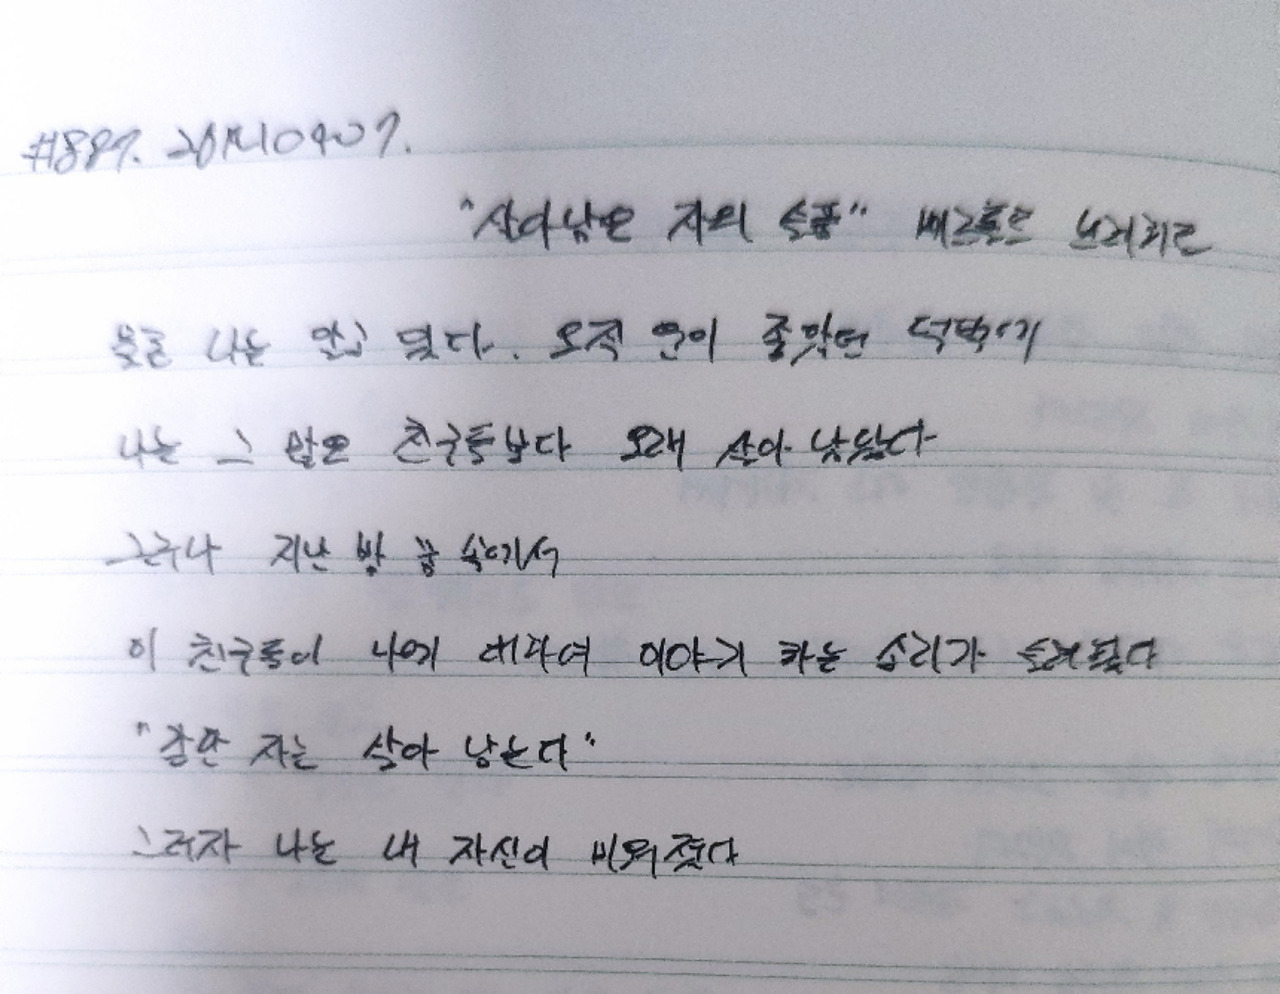 "살아남은 자의 슬픔" 베르톨트 브레히트
물론 나는 알고 있다. 오직 운이 좋았던 덕택에
나는 그 많은 친구들보다 오래 살아 남았다
그러나 지난 밤 꿈 속에서
이 친구들이 나에 대하여 이야기 하는 소리가 들려왔다
"강한 자는 살아 남는다"
그러자 나는 내 자신이 미워졌다